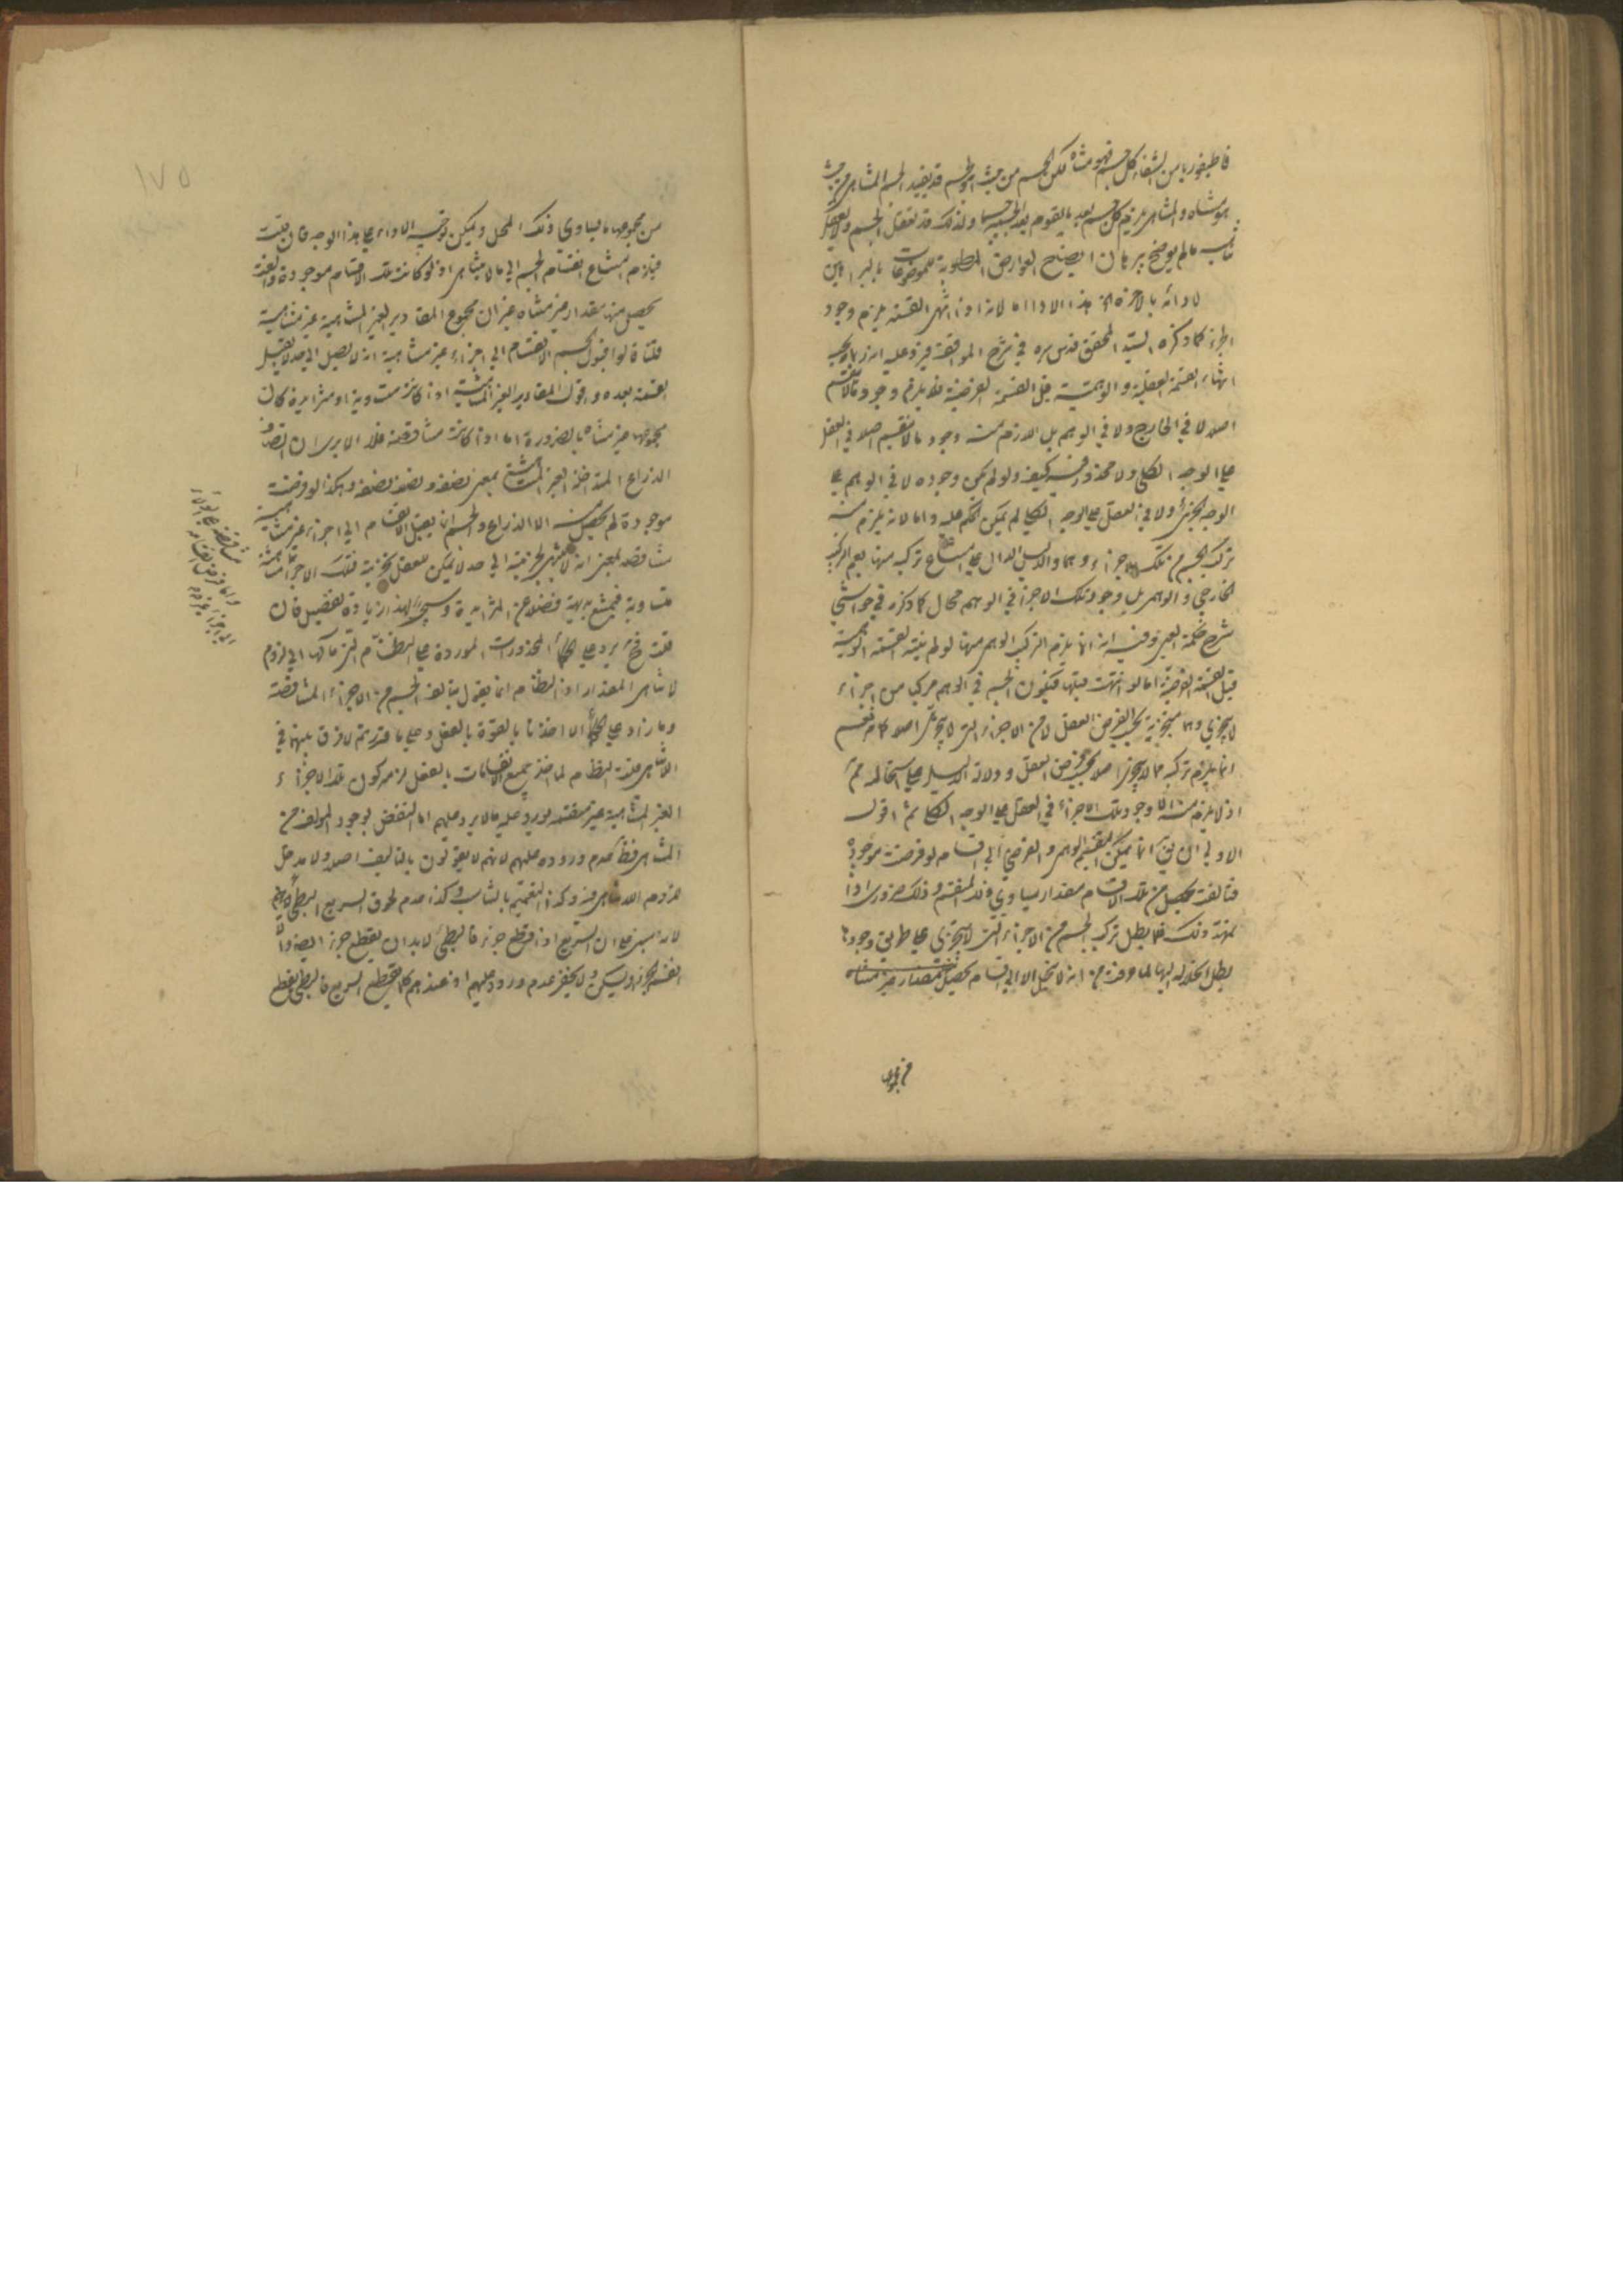 قاطيغورياس الشفا كل جسم فهو متناه لكن الجسم من حيث هو جسم قد يفيد الجسم المتناهي من حيث
هو متناه والمتناهي يلزم كل جسم بعد ما يتقوم بعد الجسمية جسما ولذلك قد نعقل الجسم ولا نعقل
تناهيه ما لم يوضح ببرهان ايضاح العوارض المطلوبة للموضوعات بالبراهين
لادائه بالاخرة هذا الاداء اما لانه اذا انتهى القسمة يلزم وجود
الجزء كما ذكره السيد المحقق قدس سره في شرح المواقف فيرد عليه انه ربما يجب
انتهاء القسمة العقلية والوهمية قبل القسمة الفرضية فلا يلزم وجود ما لا ينقسم
اصلا لا في الخارج ولا في الوهم بل اللازم منه وجود ما لا ينقسم اصلا في العقل
على الوجه الكلي ولا محذور فيه كيف ولو لم يكن وجوده لا في الوهم على
الوجه الجزئي ولا في العقل على الوجه الكلي لم يمكن الحكم عليه واما لانه يلزم منه
تركب الجسم من تلك الاجزاء وهما والدليل الدال على امتناع تركبه منها يعم التركب
الخارجي والوهمي بل وجود تلك الاجزاء في الوهم محال كما ذكره في حواشي
شرح حكمة العين وفيه انه انما يلزم التركب الوهمي منها لو لم ينته القسمة الوهمية
قبل القسمة الفرضية اما لو انتهت قبلها فيكون الجسم في الوهم مركبا من اجزاء
لا يتجزى وهما متجزية بحسب الفرض العقلي لا من الاجزاء التي لا يتجزى اصلا كما نعم
انما يلزم تركبه مما لا يتجزى اصلا بحسب فرض العقل ودلالة الدليل على استحالته مم
اذ لا يلزم منه الا وجود تلك الاجزاء في العقل على الوجه الكلي ثم اقول
الاولى ان يقال انما يمكن التقسيم الوهمي والفرضي الى اقسام لو فرضت موجودة
وتألفت يحصل من تلك الاقسام مقدار يساوي ذلك المنقسم وذلك ضروري اذا
تمهد ذلك فلما بطل تركب الجسم من الاجزاء التي لا يتجزى على طريق وجودها
بطل انحلاله اليها لما عرفت من انه لا ينحل الا الى اقسام يحصل
من مجموعها
من مجموعها ما يساوى ذلك المحل ويمكن توجيه الاداء على هذا الوجه فان قلت
فيلزم امتناع انقسام الجسم الى ما لا يتناهى اذ لو كانت تلك الاقسام موجودة وتألفت
يحصل منها مقدار غير متناه غير ان مجموع المقادير الغير المتناهية غير متناهية
قلنا قالوا قبول الجسم الانقسام الى اجزاء غير متناهية انه لا يصل الى حد لا يقبل
القسمة بعده واقول المقادير الغير المتناهية اذا كانت متساوية او متزايدة كان
مجموعها غير متناه بالضرورة اما اذا كانت متناقصة فلا الا يرى ان انصاف
الذراع المتداخلة الغير المتناهية بمعنى نصفه ونصف نصفه وهكذا لو فرضت
موجودة لم يحصل منه الا الذراع والجسم انما يقبل الانقسام الى اجزاء غير متناهية
متناقصة بمعنى انه لا ينتهي تجزيته الى حد لا يمكن للعقل تجزية تلك الاجزاء
متساوية فيمتنع بديهة فضلا عن المتزايدة وسيجيء لهذا زيادة تفصيل فان
قلت فح يرد على الحكماء المحذورات الموردة على النظام التي مآلها الى لزوم
لا تناهى المقدار اذ النظام انما يقول بتألف الجسم من الاجزاء المتناقصة
وما زاد على الحكماء الا اخذ ما بالقوة بالفعل وعلى ما قررتم لا فرق بينهما في
اللاتناهي قلت النظام لما اخذ جميع الانقسامات بالفعل لزمه كون تلك الاجزاء
الغير المتناهية غير منقسمة فيرد عليه ما لا يرد عليهم اما النقض بوجود المؤلف من
المتناهي فظ عدم وروده عليهم لانهم لا يقولون بالتأليف اصلا ولا مدخل
للزوم اللاتناهي فيه وكذا التعميم بالتناسب وكذا عدم لحوق السريع البطئ
لانه مبنى على ان السريع اذا قطع جزء فالبطئ لا بد ان يقطع جزء ايضا والا
انقسم الجزء او يسكن ولا يخفى عدم وروده عليهم اذ عندهم كلما يقطع السريع فالبطئ يقطع